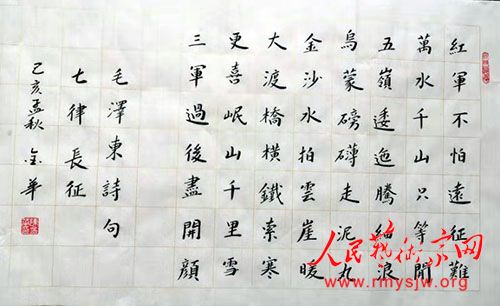 紅軍不怕遠征難
萬水千山只等閒
五嶺逶迤騰細浪
烏蒙磅礴走泥丸
金沙水拍雲崖暖
大渡橋橫鐵索寒
更喜岷山千里雪
三軍過後盡開顏
毛澤東詩句
七律長征
己亥孟秋 金華
人民藝術家网
www.rmysjw.org